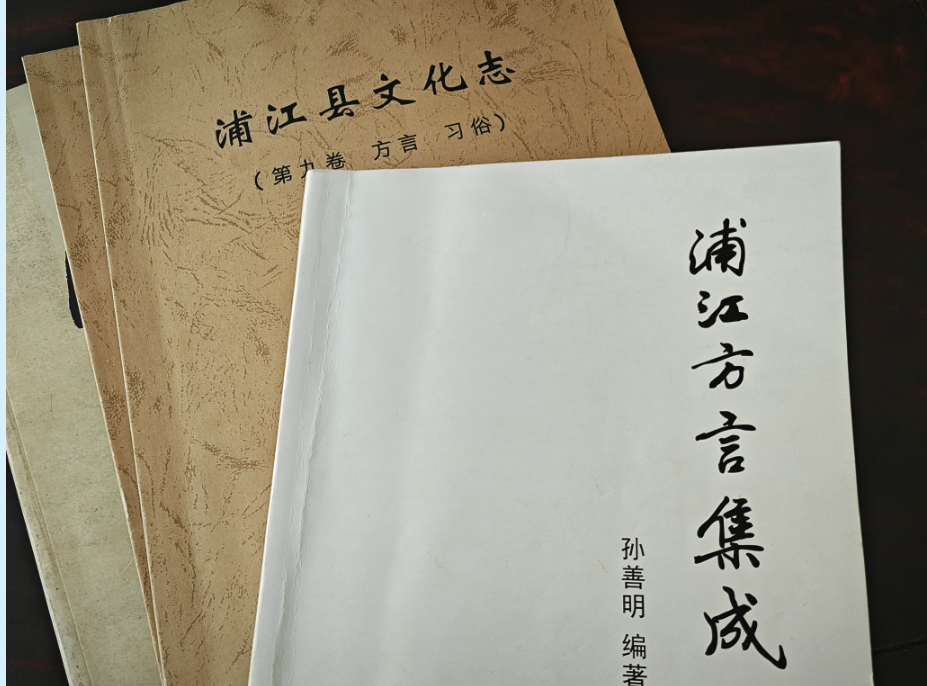 浦江县文化志
（第九卷 方言 习俗）
浦江方言集成
孙善明 编著